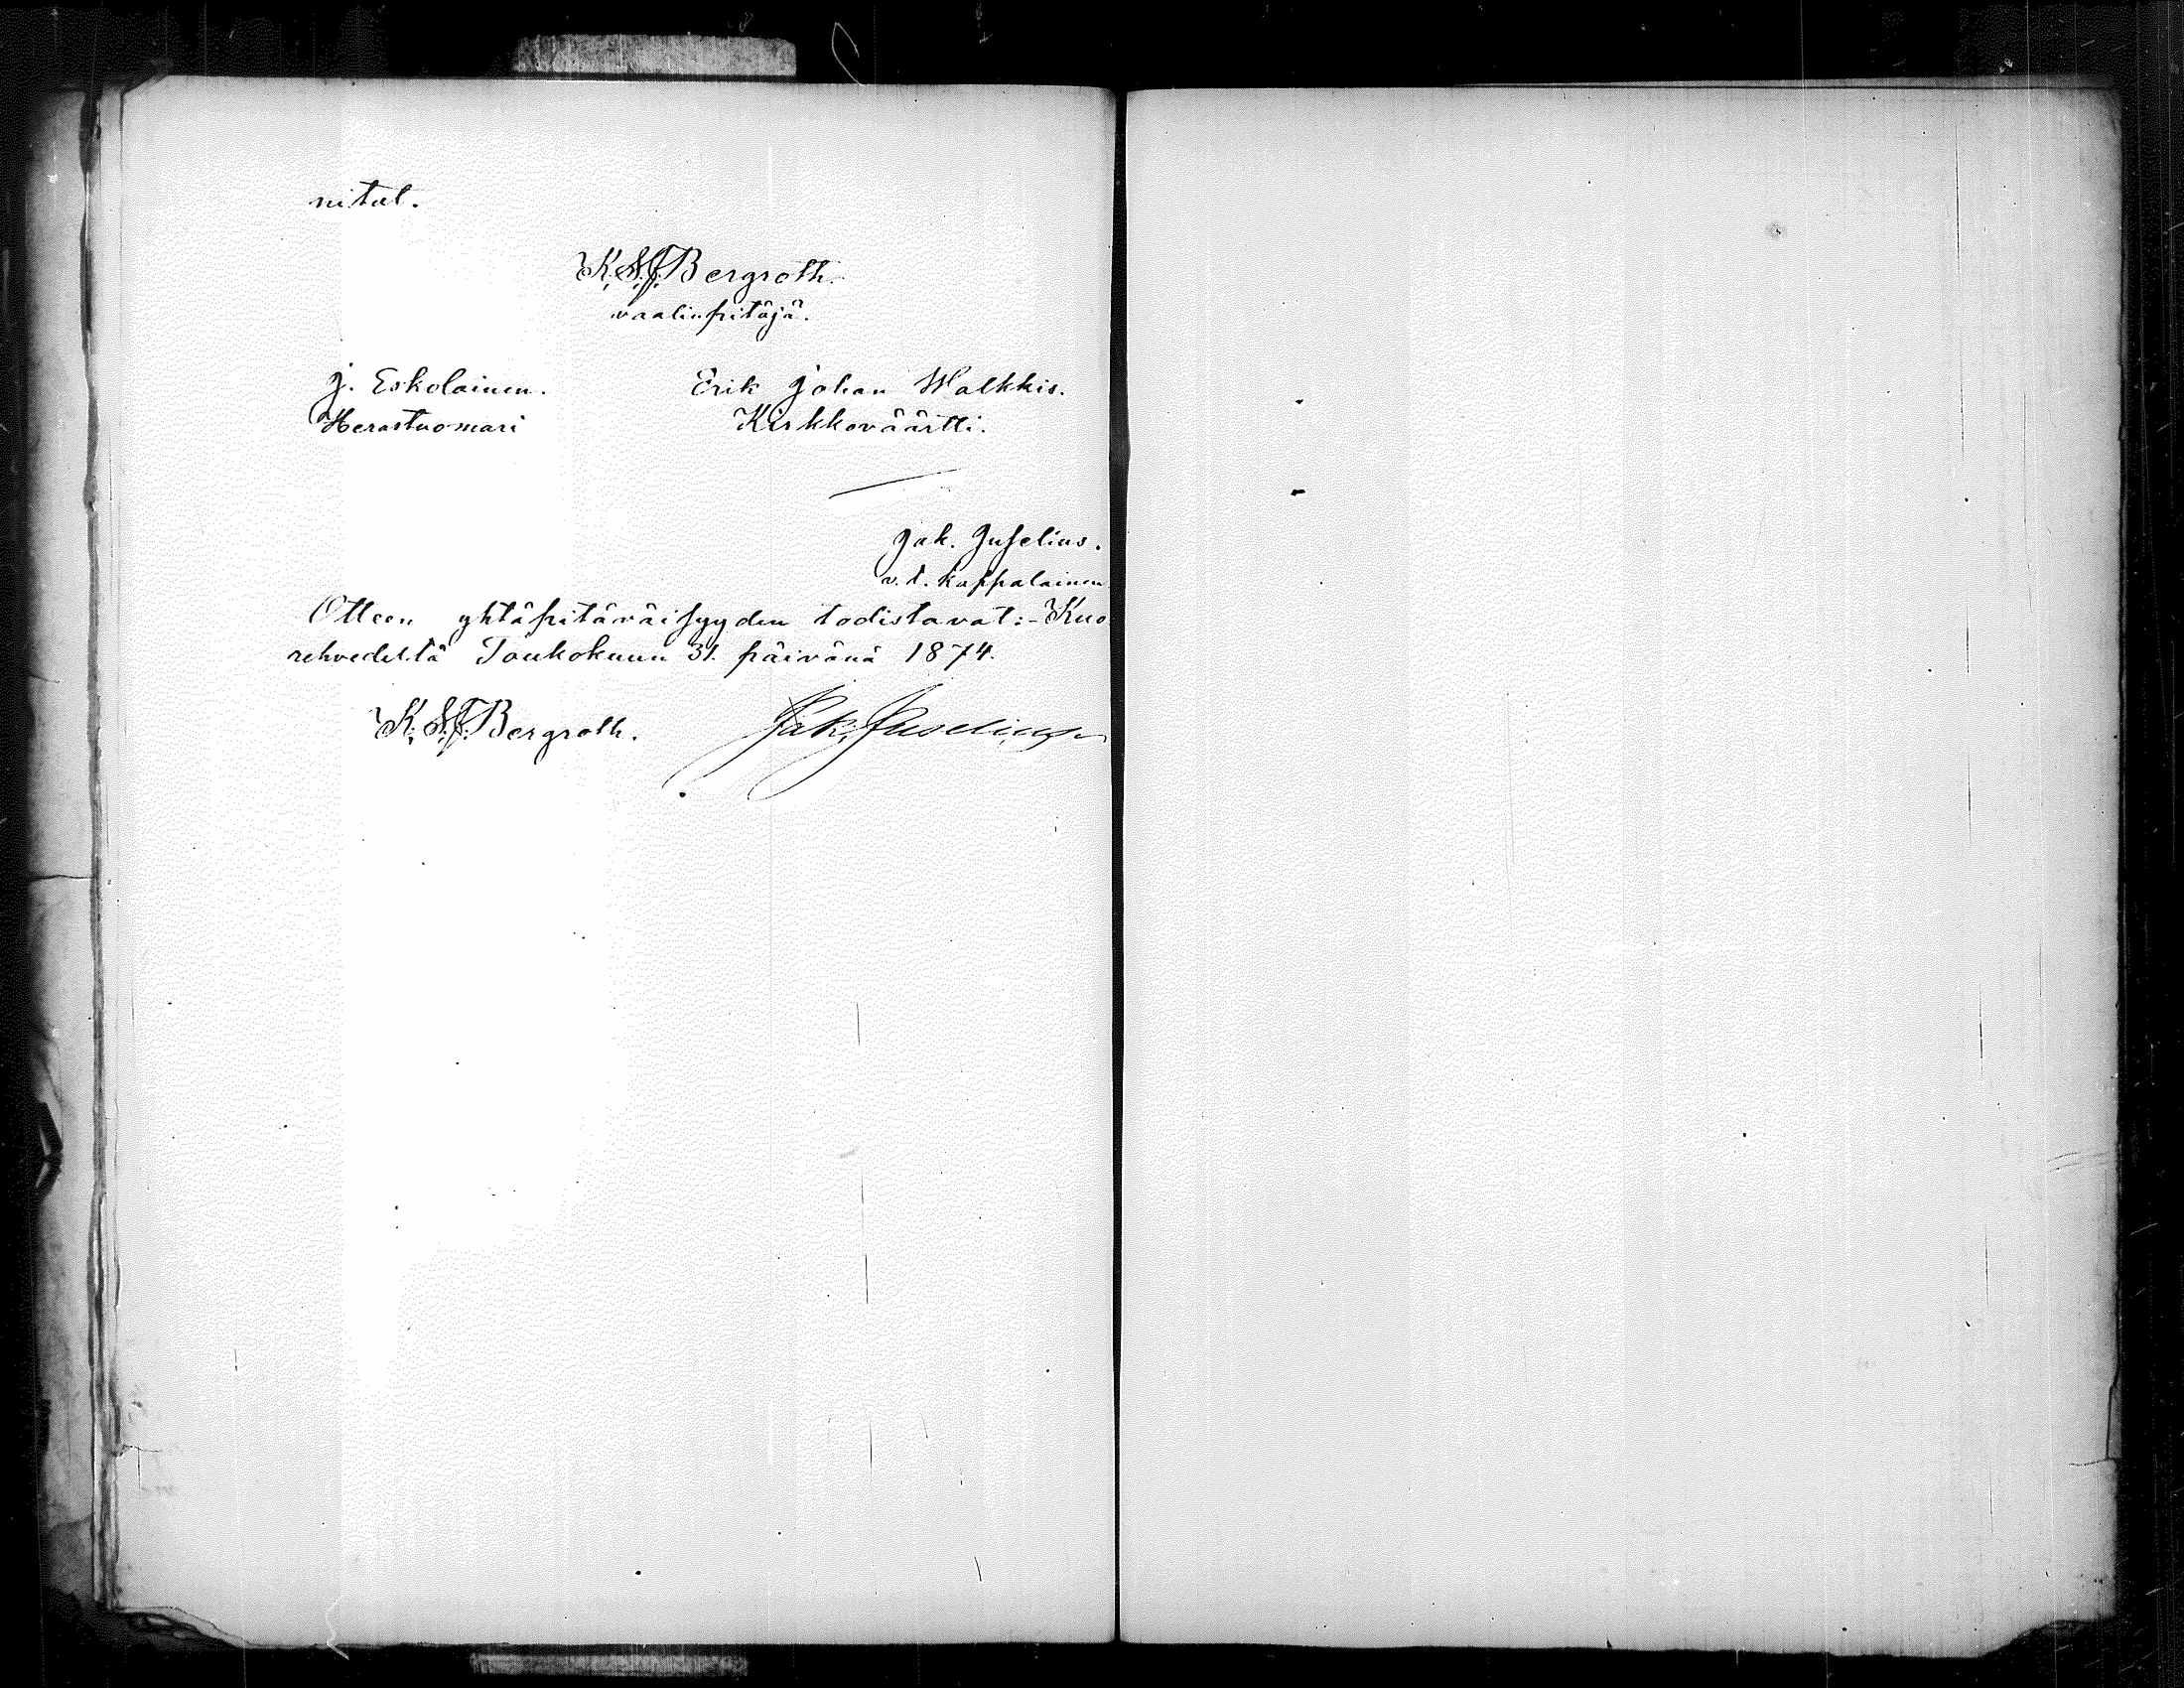 nitut.
K. S. J. Bergroth.
vaalinpitäjä.
J. Eskolainen. Erik Johan Walkkis.
Herastuomari Kirkkoväärtti.
Jak. Juselius.
v. t. kappalainen
Otteen yhtäpitäväisyyden todistavat: - Kuo
rehvedeltä Toukokuun 31. päivänä 1874.
K. S. J. Bergroth. Jak. Juselius